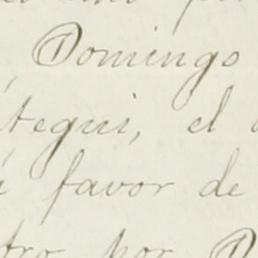 Domingo
tegui, el
favor de
tro por D